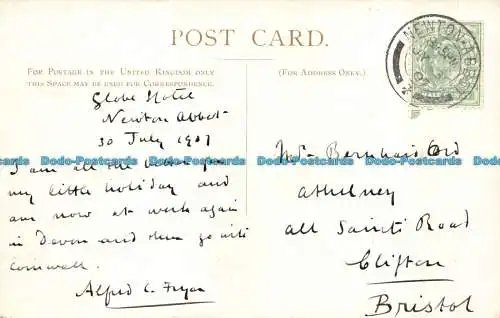 POST CARD.
FOR POSTAGE IN THE UNITED KINGDOM ONLY
THIS SPACE MAY BE USED FOR CORRESPONDENCE.
(FOR ADDRESS ONLY.)
NEWTON-ABBOT
Globe Hotel
Newton Abbot
30 July 1907
I am all the better for
my little holiday and
am now at work again
in Devon and then go into
Cornwall.
Alfred C. Fryer
Mr. Bernhard
Athelney
All Saints Road
Clifton
Bristol
Dodo-Postcards Dodo-Postcards Dodo-Postcards Dodo-Postcards Dodo-Postcards